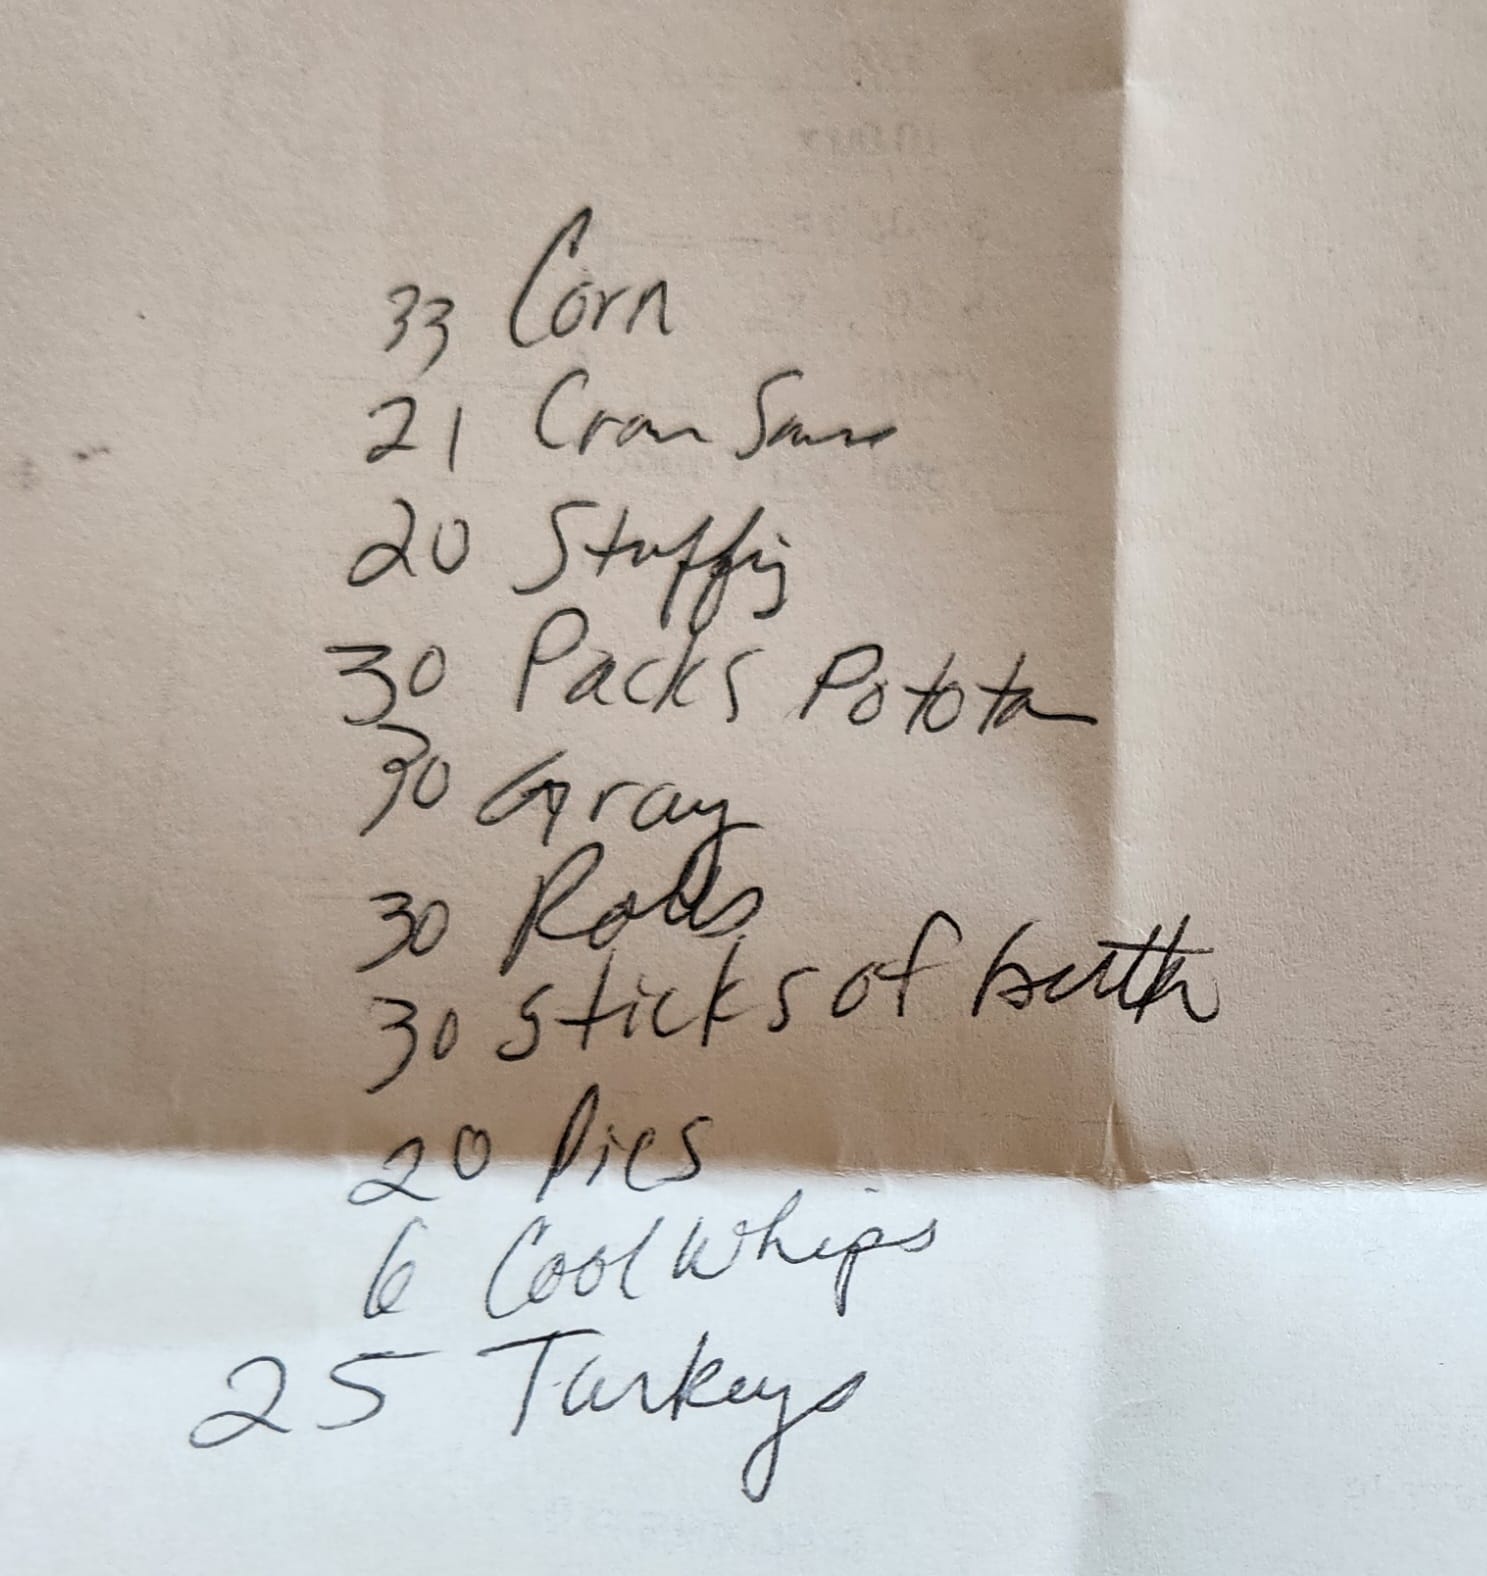 33 Corn
21 Cran Sauce
20 Stuffing
30 Packs Potota
30 Gray
30 Rolls
30 Sticks of butter
20 Pies
6 Cool Whips
25 Turkeys